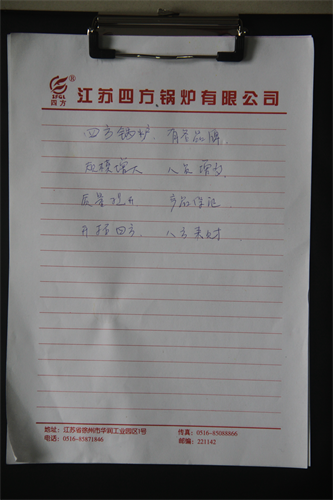 SFGL ®
四方
江苏四方锅炉有限公司
四方锅炉 有名品牌
规模增大 人员增多
质量提升 产品保证
开拓四方 八方来财
地址：江苏省徐州市华润工业园区1号
传真：0516-85088866
电话：0516-85871846
邮编：221142